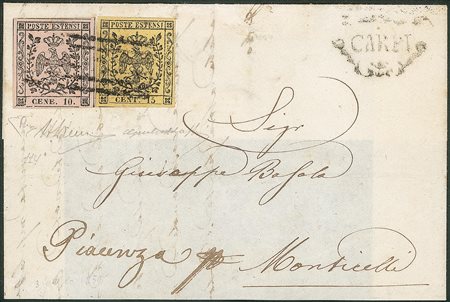 POSTE ESTENSI
CENE. 10.
POSTE ESTENSI
CENT. 15
CARPI
Sigr
Giuseppe Basola
Piacenza per Monticelli